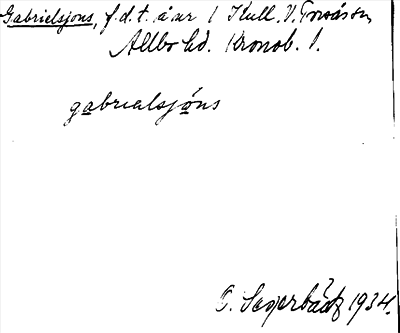 Gabrielsjons, f.d.t. å nr 1 Kull. V. Torsås sn,
Allbo hd. Kronob. l.
gabrialsjóns
C. Segerbäck 1934.